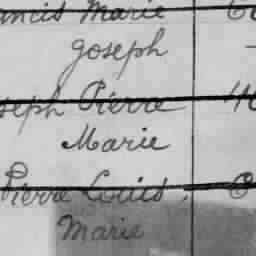 ancis Marie
Joseph
seph Pierre
Marie
Pierre Louis
Marie